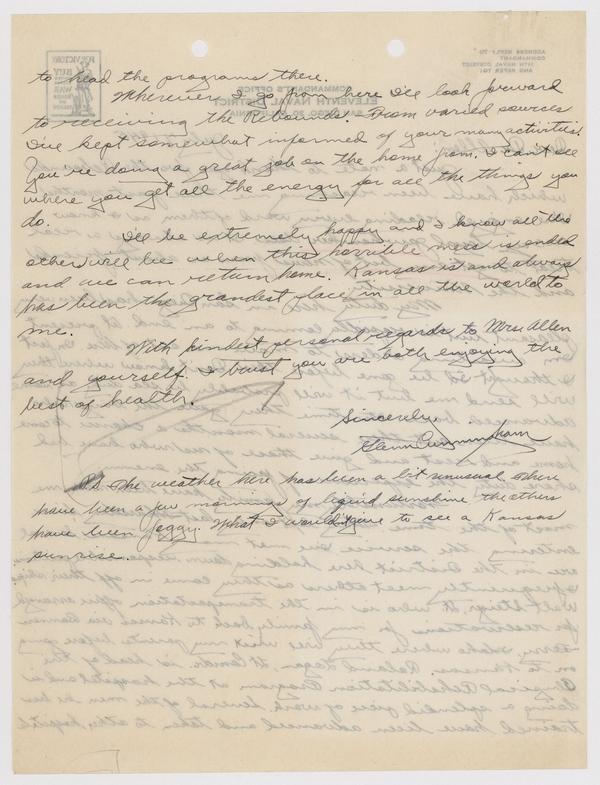 to head the programs there.
Wherever I go from here I'll look forward
to receiving the Rebounds. From varied sources
I've kept somewhat informed of your many activities.
You're doing a great job on the home front. I can't see
where you get all the energy for all the things you
do.
I'll be extremely happy and I know all the
others will be when this horrible mess is ended
and we can return home. Kansas is and always
has been the grandest place in all the world to
me.
With kindest personal regards to Mrs. Allen
and yourself. I trust you are both enjoying the
best of health.
Sincerely,
Glenn Cunningham
P.S. The weather here has been a bit unusual. There
have been a few mornings of liquid sunshine the others
have been foggy. What I wouldn't give to see a Kansas
sunrise.